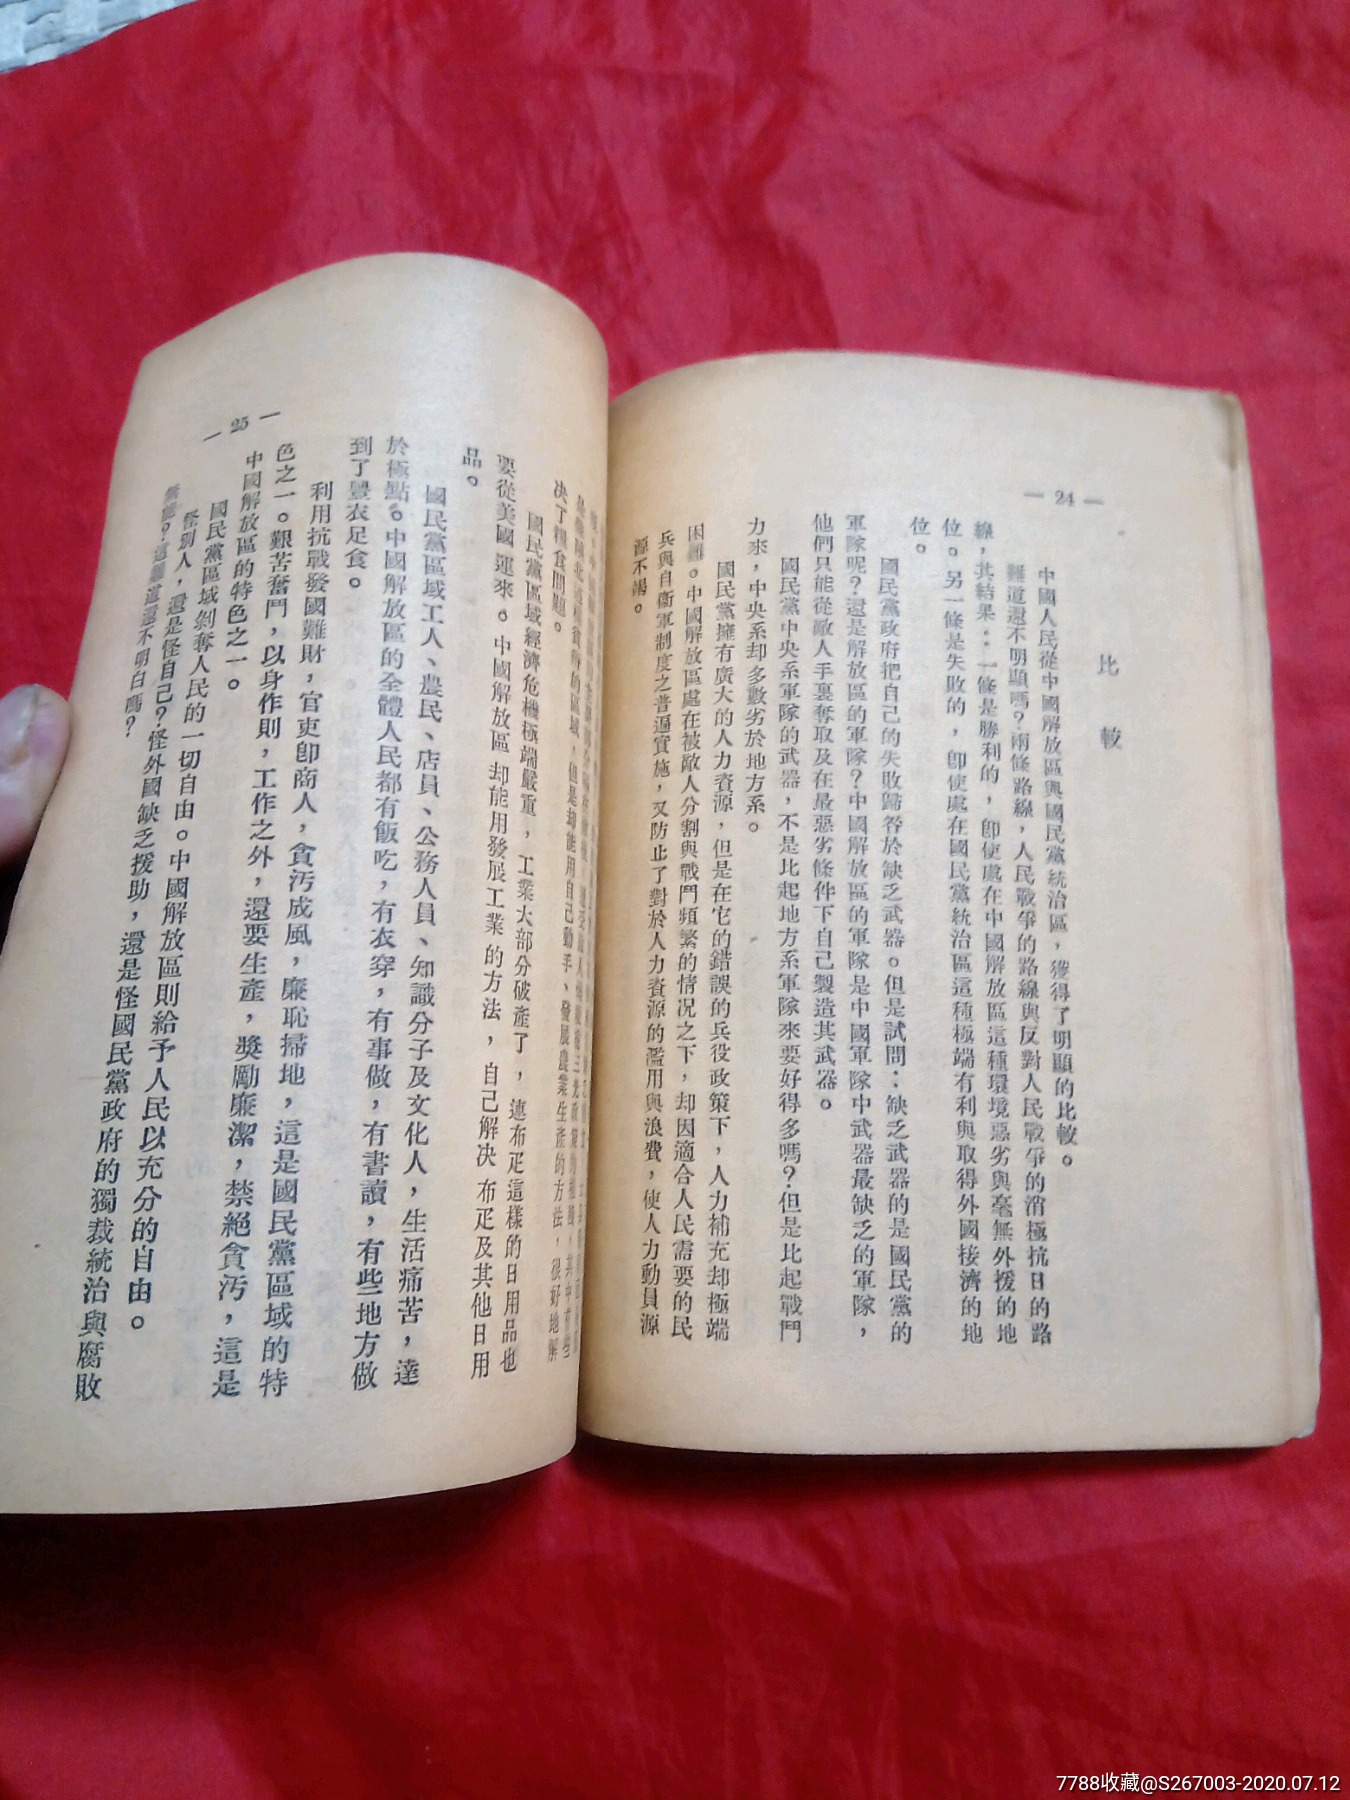 — 24 —
比較
中國人民從中國解放區與國民黨統治區,獲得了明顯的比較。
難道還不明顯嗎?兩條路線,人民戰爭的路線與反對人民戰爭的消極抗日的路
線,其結果:一條是勝利的,卽使處在中國解放區這種環境惡劣與毫無外援的地
位。另一條是失敗的,卽使處在國民黨統治區這種極端有利與取得外國接濟的地
位。
國民黨政府把自己的失敗歸咎於缺乏武器。但是試問:缺乏武器的是國民黨的
軍隊呢?還是解放區的軍隊?中國解放區的軍隊是中國軍隊中武器最缺乏的軍隊,
他們只能從敵人手裏奪取及在最惡劣條件下自己製造其武器。
國民黨中央系軍隊的武器,不是比起地方系軍隊來要好得多嗎?但是比起戰鬥
力來,中央系却多數劣於地方系。
國民黨擁有廣大的人力資源,但是在它的錯誤的兵役政策下,人力補充却極端
困難。中國解放區處在被敵人分割與戰鬥頻繁的情况之下,却因適合人民需要的民
兵與自衞軍制度之普遍實施,又防止了對於人力資源的濫用與浪費,使人力動員源
源不竭。
的區域,但是却能用自己動手、發展農業生產的方法,很好地解
决了糧食問題。
國民黨區域經濟危機極端嚴重,工業大部分破產了,連布疋這樣的日用品也
要從美國運來。中國解放區却能用發展工業的方法,自己解决布疋及其他日用
品。
國民黨區域工人、農民、店員、公務人員、知識分子及文化人,生活痛苦,達
於極點。中國解放區的全體人民都有飯吃,有衣穿,有事做,有書讀,有些地方做
到了豐衣足食。
利用抗戰發國難財,官吏卽商人,貪汚成風,廉恥掃地,這是國民黨區域的特
色之一。艱苦奮鬥,以身作則,工作之外,還要生產,獎勵廉潔,禁絕貪汚,這是
中國解放區的特色之一。
國民黨區域剝奪人民的一切自由。中國解放區則給予人民以充分的自由。
怪別人,還是怪自己?怪外國缺乏援助,還是怪國民黨政府的獨裁統治與腐敗
無能?這難道還不明白嗎?
— 25 —
7788收藏@S267003-2020.07.12